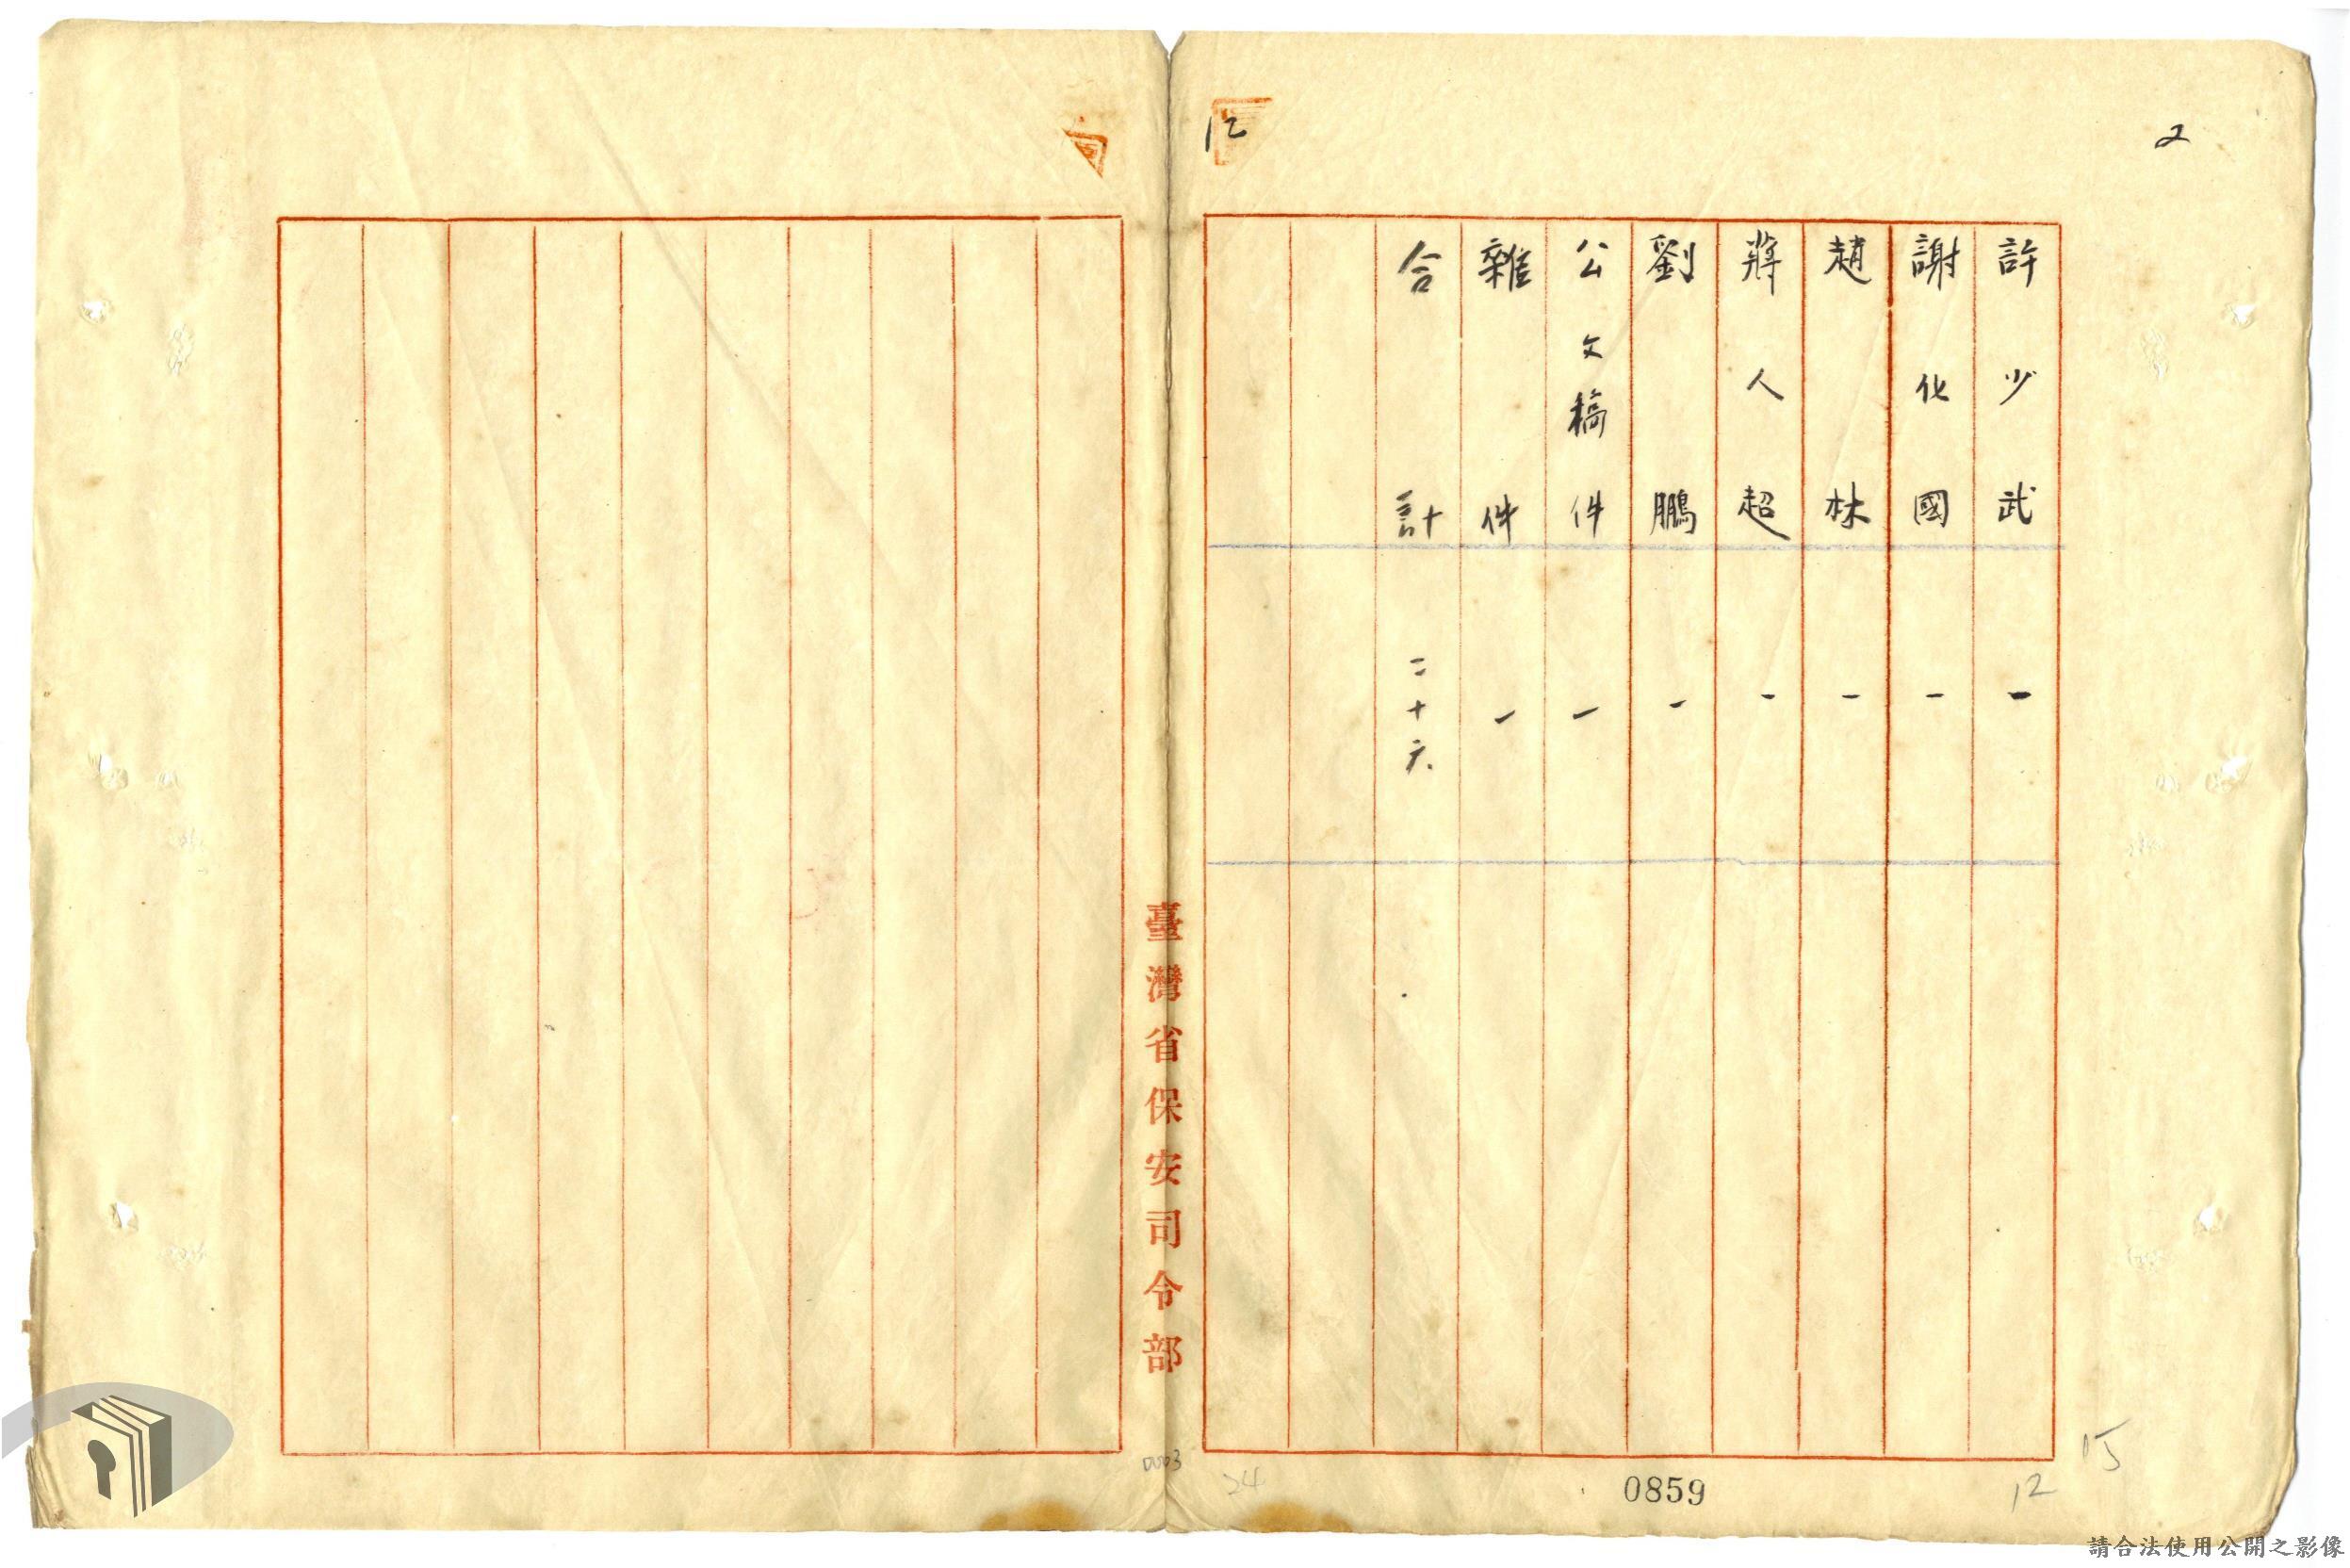 2
許少武 一
謝化國 一
趙林 一
蔣人超 一
劉鵬 一
公文稿件 一
雜件 一
合計 二十六
12
臺灣省保安司令部
0859
12
15
24
0003
請合法使用公開之影像